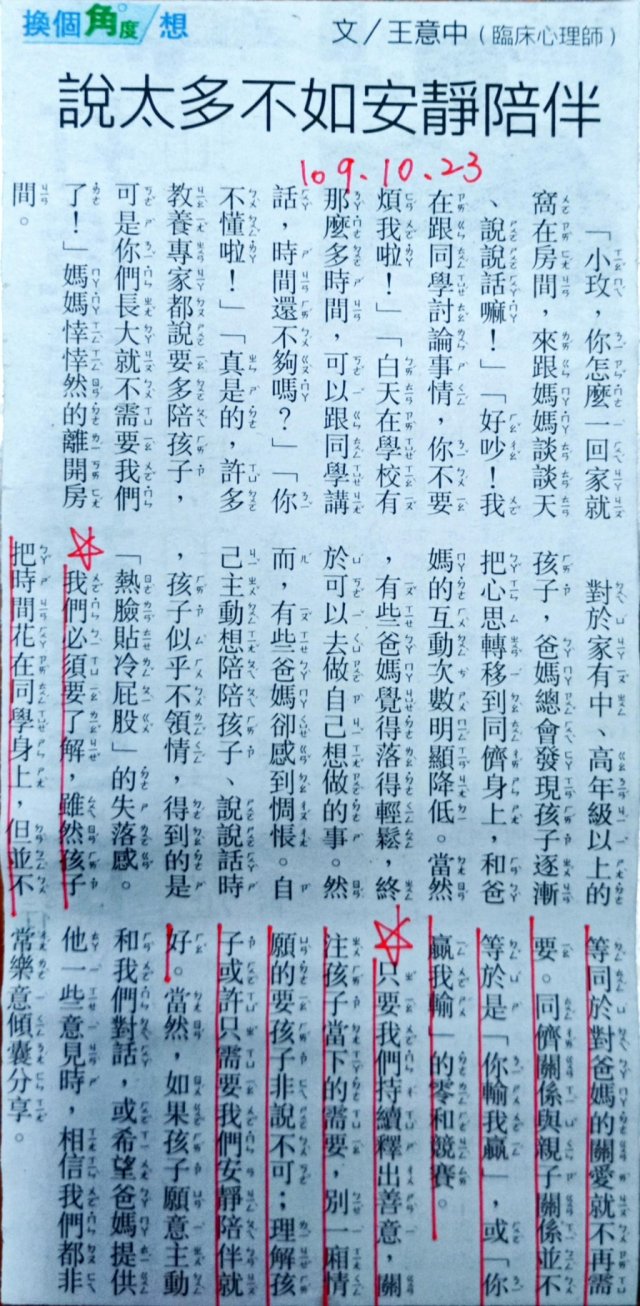 換個角度/想
文／王意中（臨床心理師）
說太多不如安靜陪伴
109.10.23
「小玫，你怎麼一回家就
窩在房間，來跟媽媽談談天
、說說話嘛！」「好吵！我
在跟同學討論事情，你不要
煩我啦！」「白天在學校有
那麼多時間，可以跟同學講
話，時間還不夠嗎？」「你
不懂啦！」「真是的，許多
教養專家都說要多陪孩子，
可是你們長大就不需要我們
了！」媽媽悻悻然的離開房
間。
對於家有中、高年級以上的
孩子，爸媽總會發現孩子逐漸
把心思轉移到同儕身上，和爸
媽的互動次數明顯降低。當然
，有些爸媽覺得落得輕鬆，終
於可以去做自己想做的事。然
而，有些爸媽卻感到惆悵。自
己主動想陪陪孩子、說說話時
，孩子似乎不領情，得到的是
「熱臉貼冷屁股」的失落感。
我們必須要了解，雖然孩子
把時間花在同學身上，但並不
等同於對爸媽的關愛就不再需
要。同儕關係與親子關係並不
等於是「你輸我贏」，或「你
贏我輸」的零和競賽。
只要我們持續釋出善意，關
注孩子當下的需要，別一廂情
願的要孩子非說不可；理解孩
子或許只需要我們安靜陪伴就
好。當然，如果孩子願意主動
和我們對話，或希望爸媽提供
他一些意見時，相信我們都非
常樂意傾囊分享。